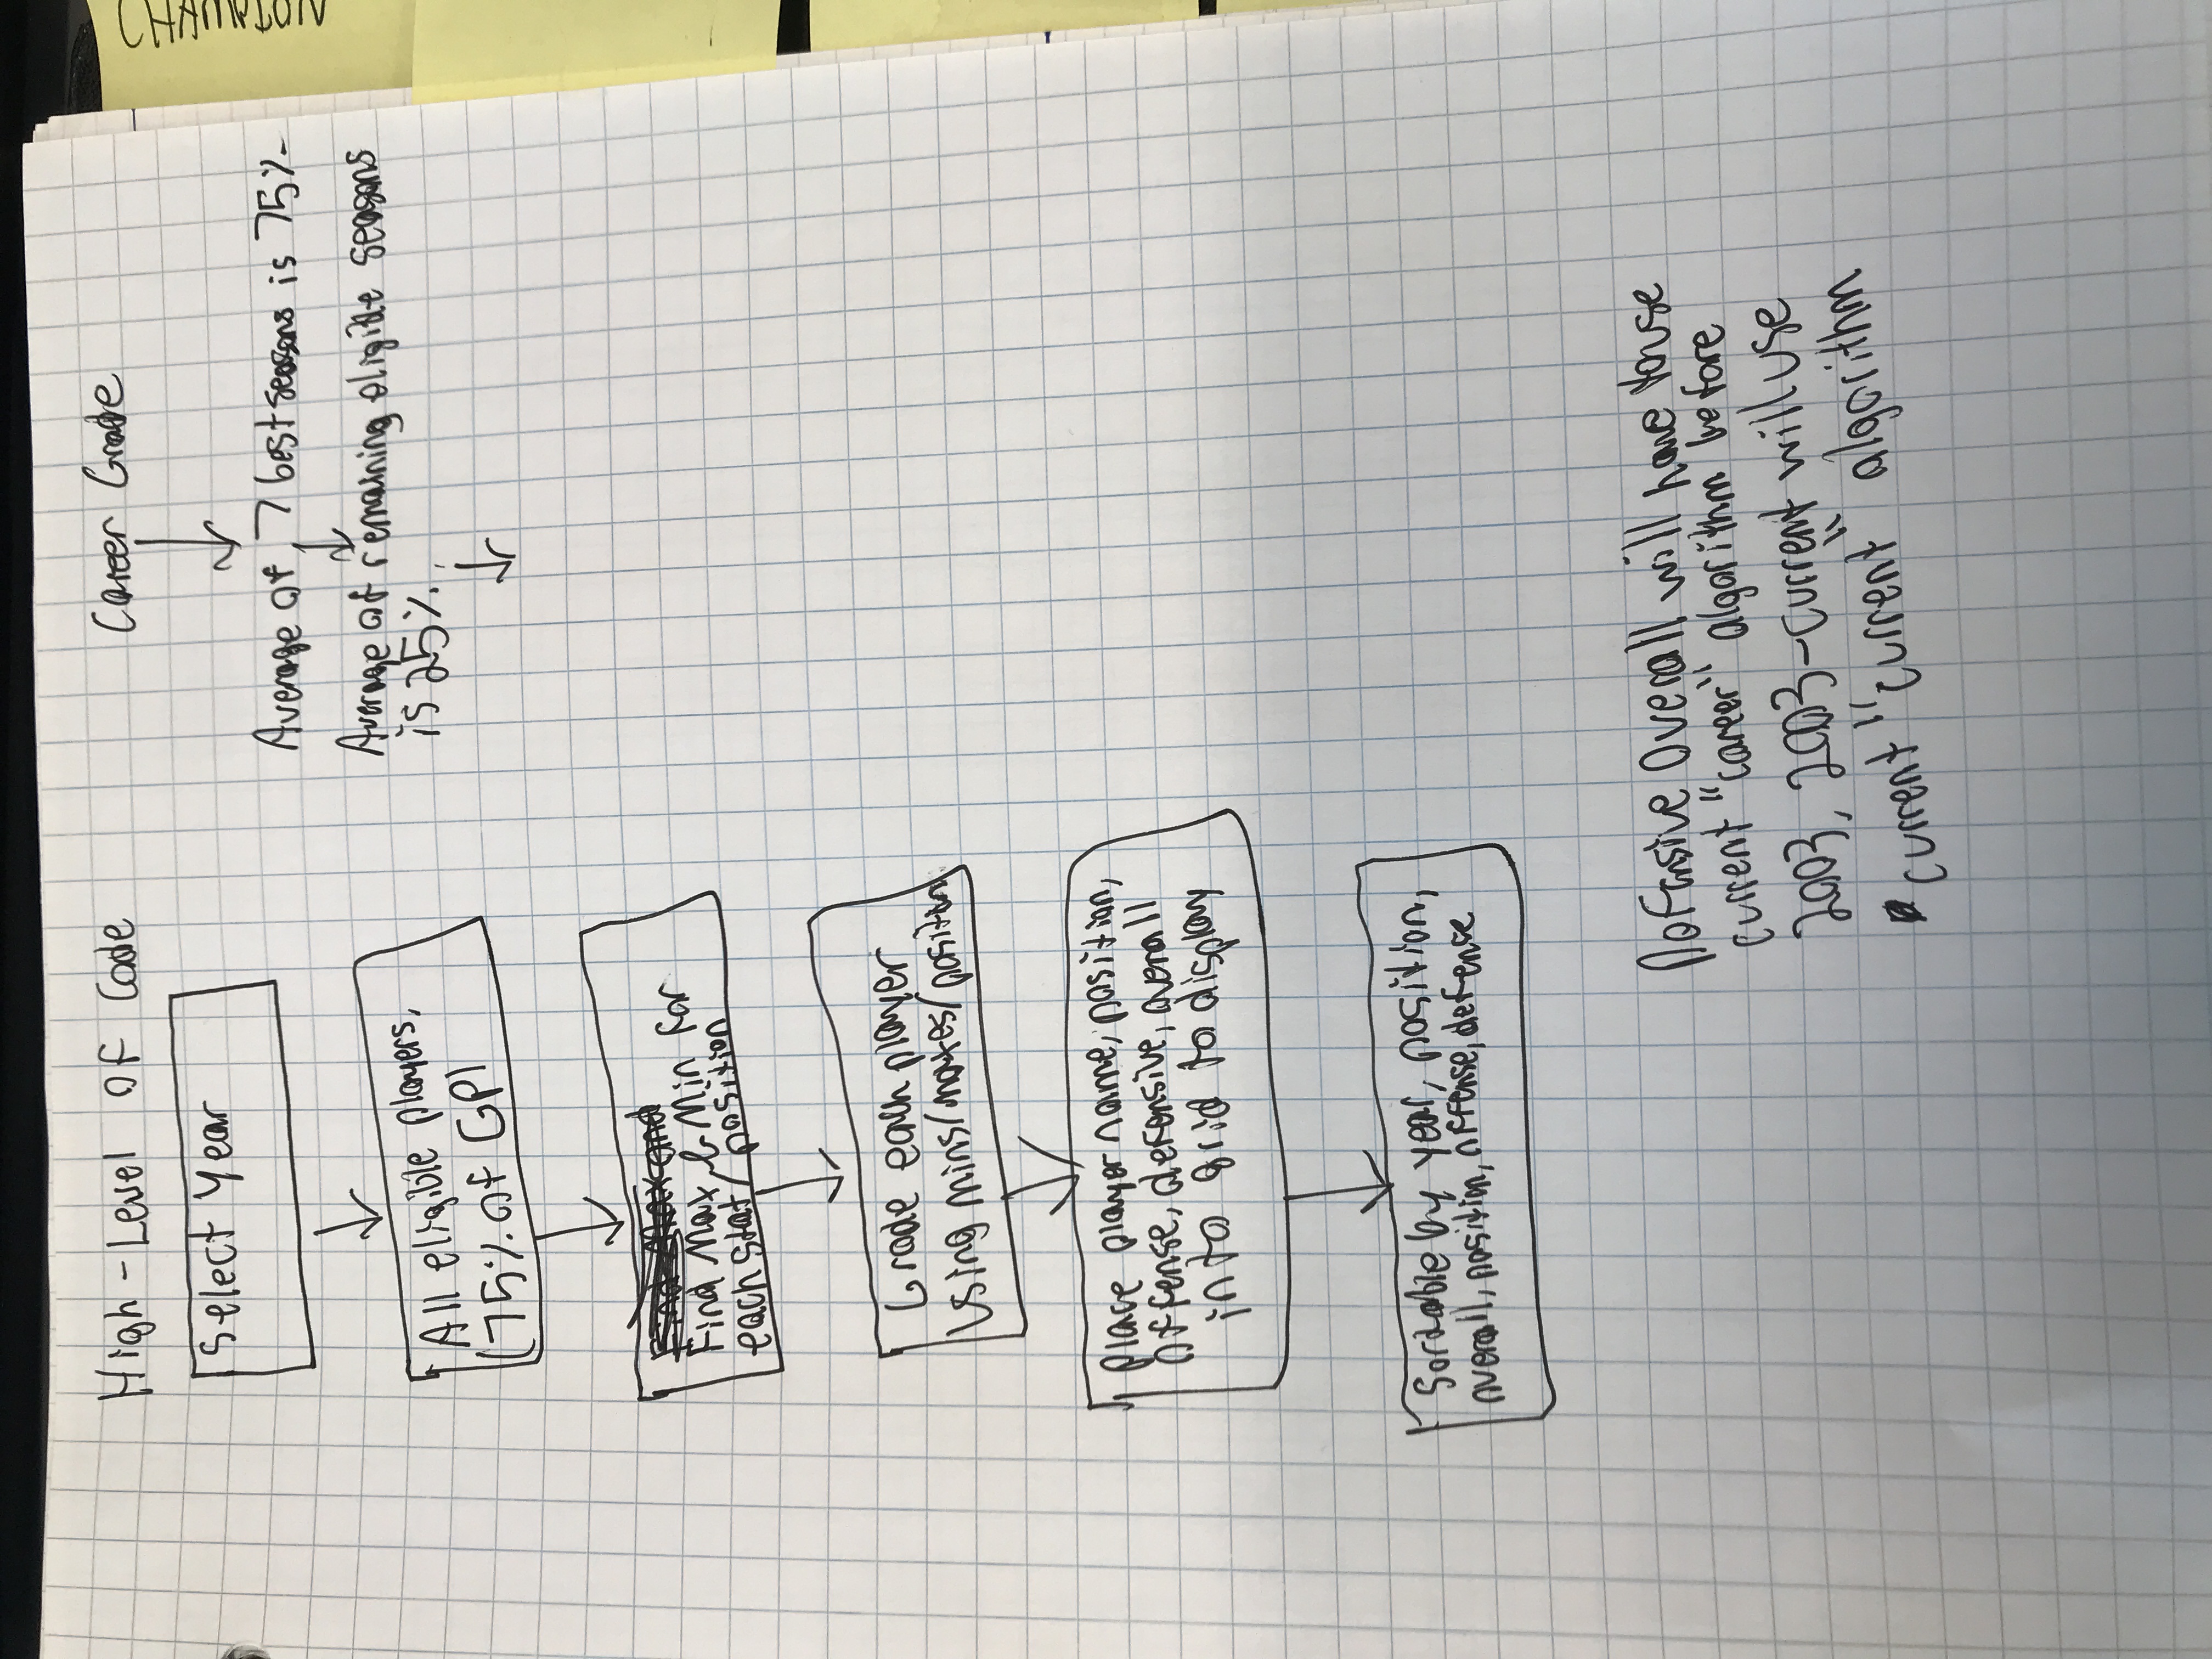 High-Level of Code
Select Year
All eligible players,
(75% of GP)
Find Max and
Find Max & Min for
each stat/position
Grade each player
Using mins/maxes/position
Place player name, position,
offense, defensive, overall
into grid to display
Sortable by year, position,
overall, position, offense, defense
Career Grade
Average of 7 best seasons is 75%
Average of remaining eligible seasons
is 25%
Defensive Overall will have to use
current "career" algorithm before
2003, 2003-current will use
current "current" algorithm
CHAMPION